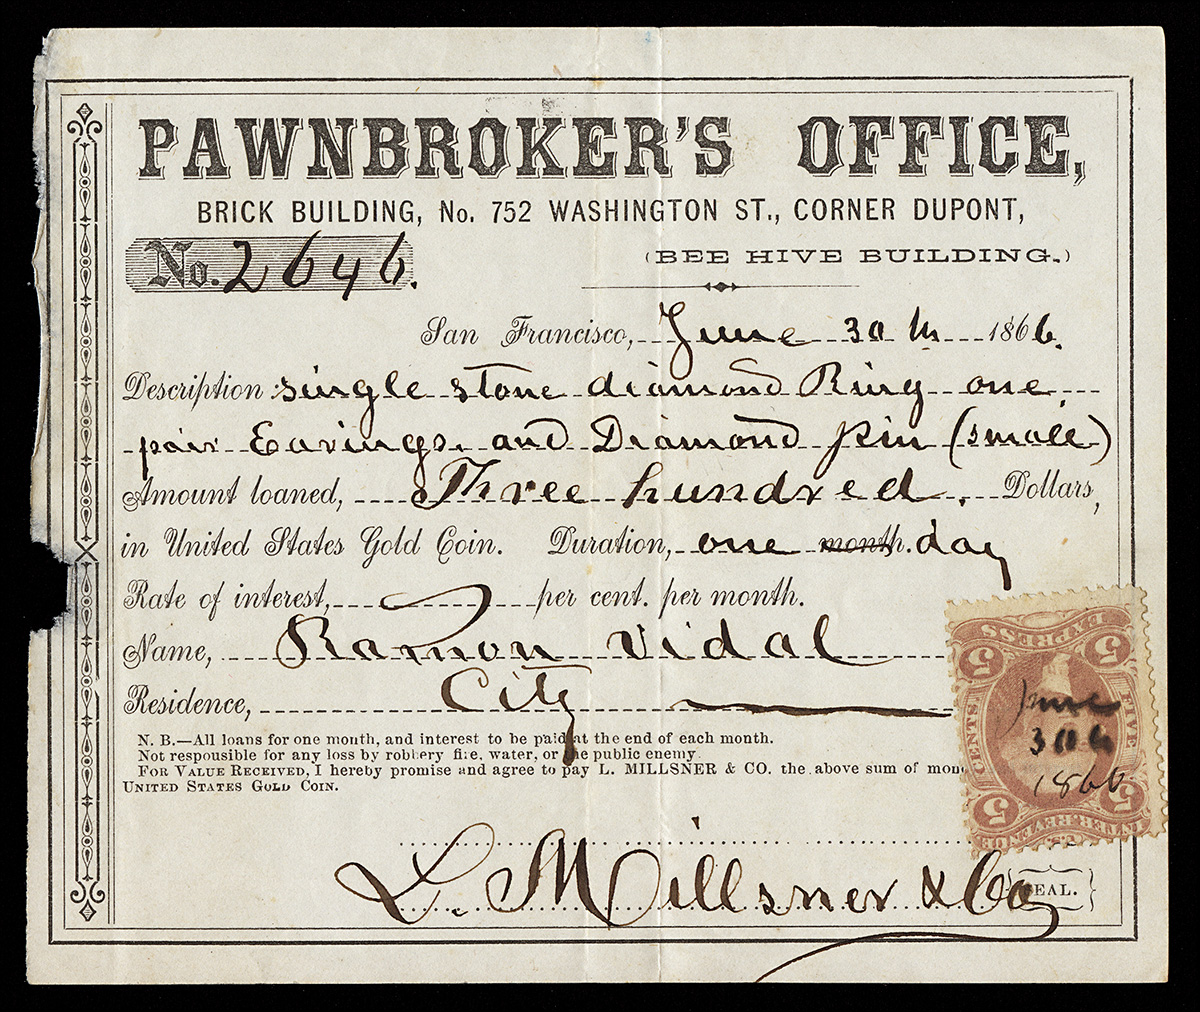 PAWNBROKER'S OFFICE,
BRICK BUILDING, No. 752 WASHINGTON ST., CORNER DUPONT,
No. 2646.
(BEE HIVE BUILDING.)
San Francisco, June 30th 1866.
Description: single stone diamond Ring one
pair Earings. and Diamond pin (small)
Amount loaned, Three hundred. Dollars,
in United States Gold Coin. Duration, one month. day
Rate of interest, per cent. per month.
Name, Ramon Vidal
Residence, City
N. B.—All loans for one month, and interest to be paid at the end of each month.
Not responsible for any loss by robbery fire, water, or the public enemy.
FOR VALUE RECEIVED, I hereby promise and agree to pay L. MILLSNER & CO. the above sum of
UNITED STATES GOLD COIN.
L. Millsner & Co
SEAL.
EXPRESS
5 5
CENTS FIVE
June
30th
1866
5 5
U.S. INTER. REVENUE